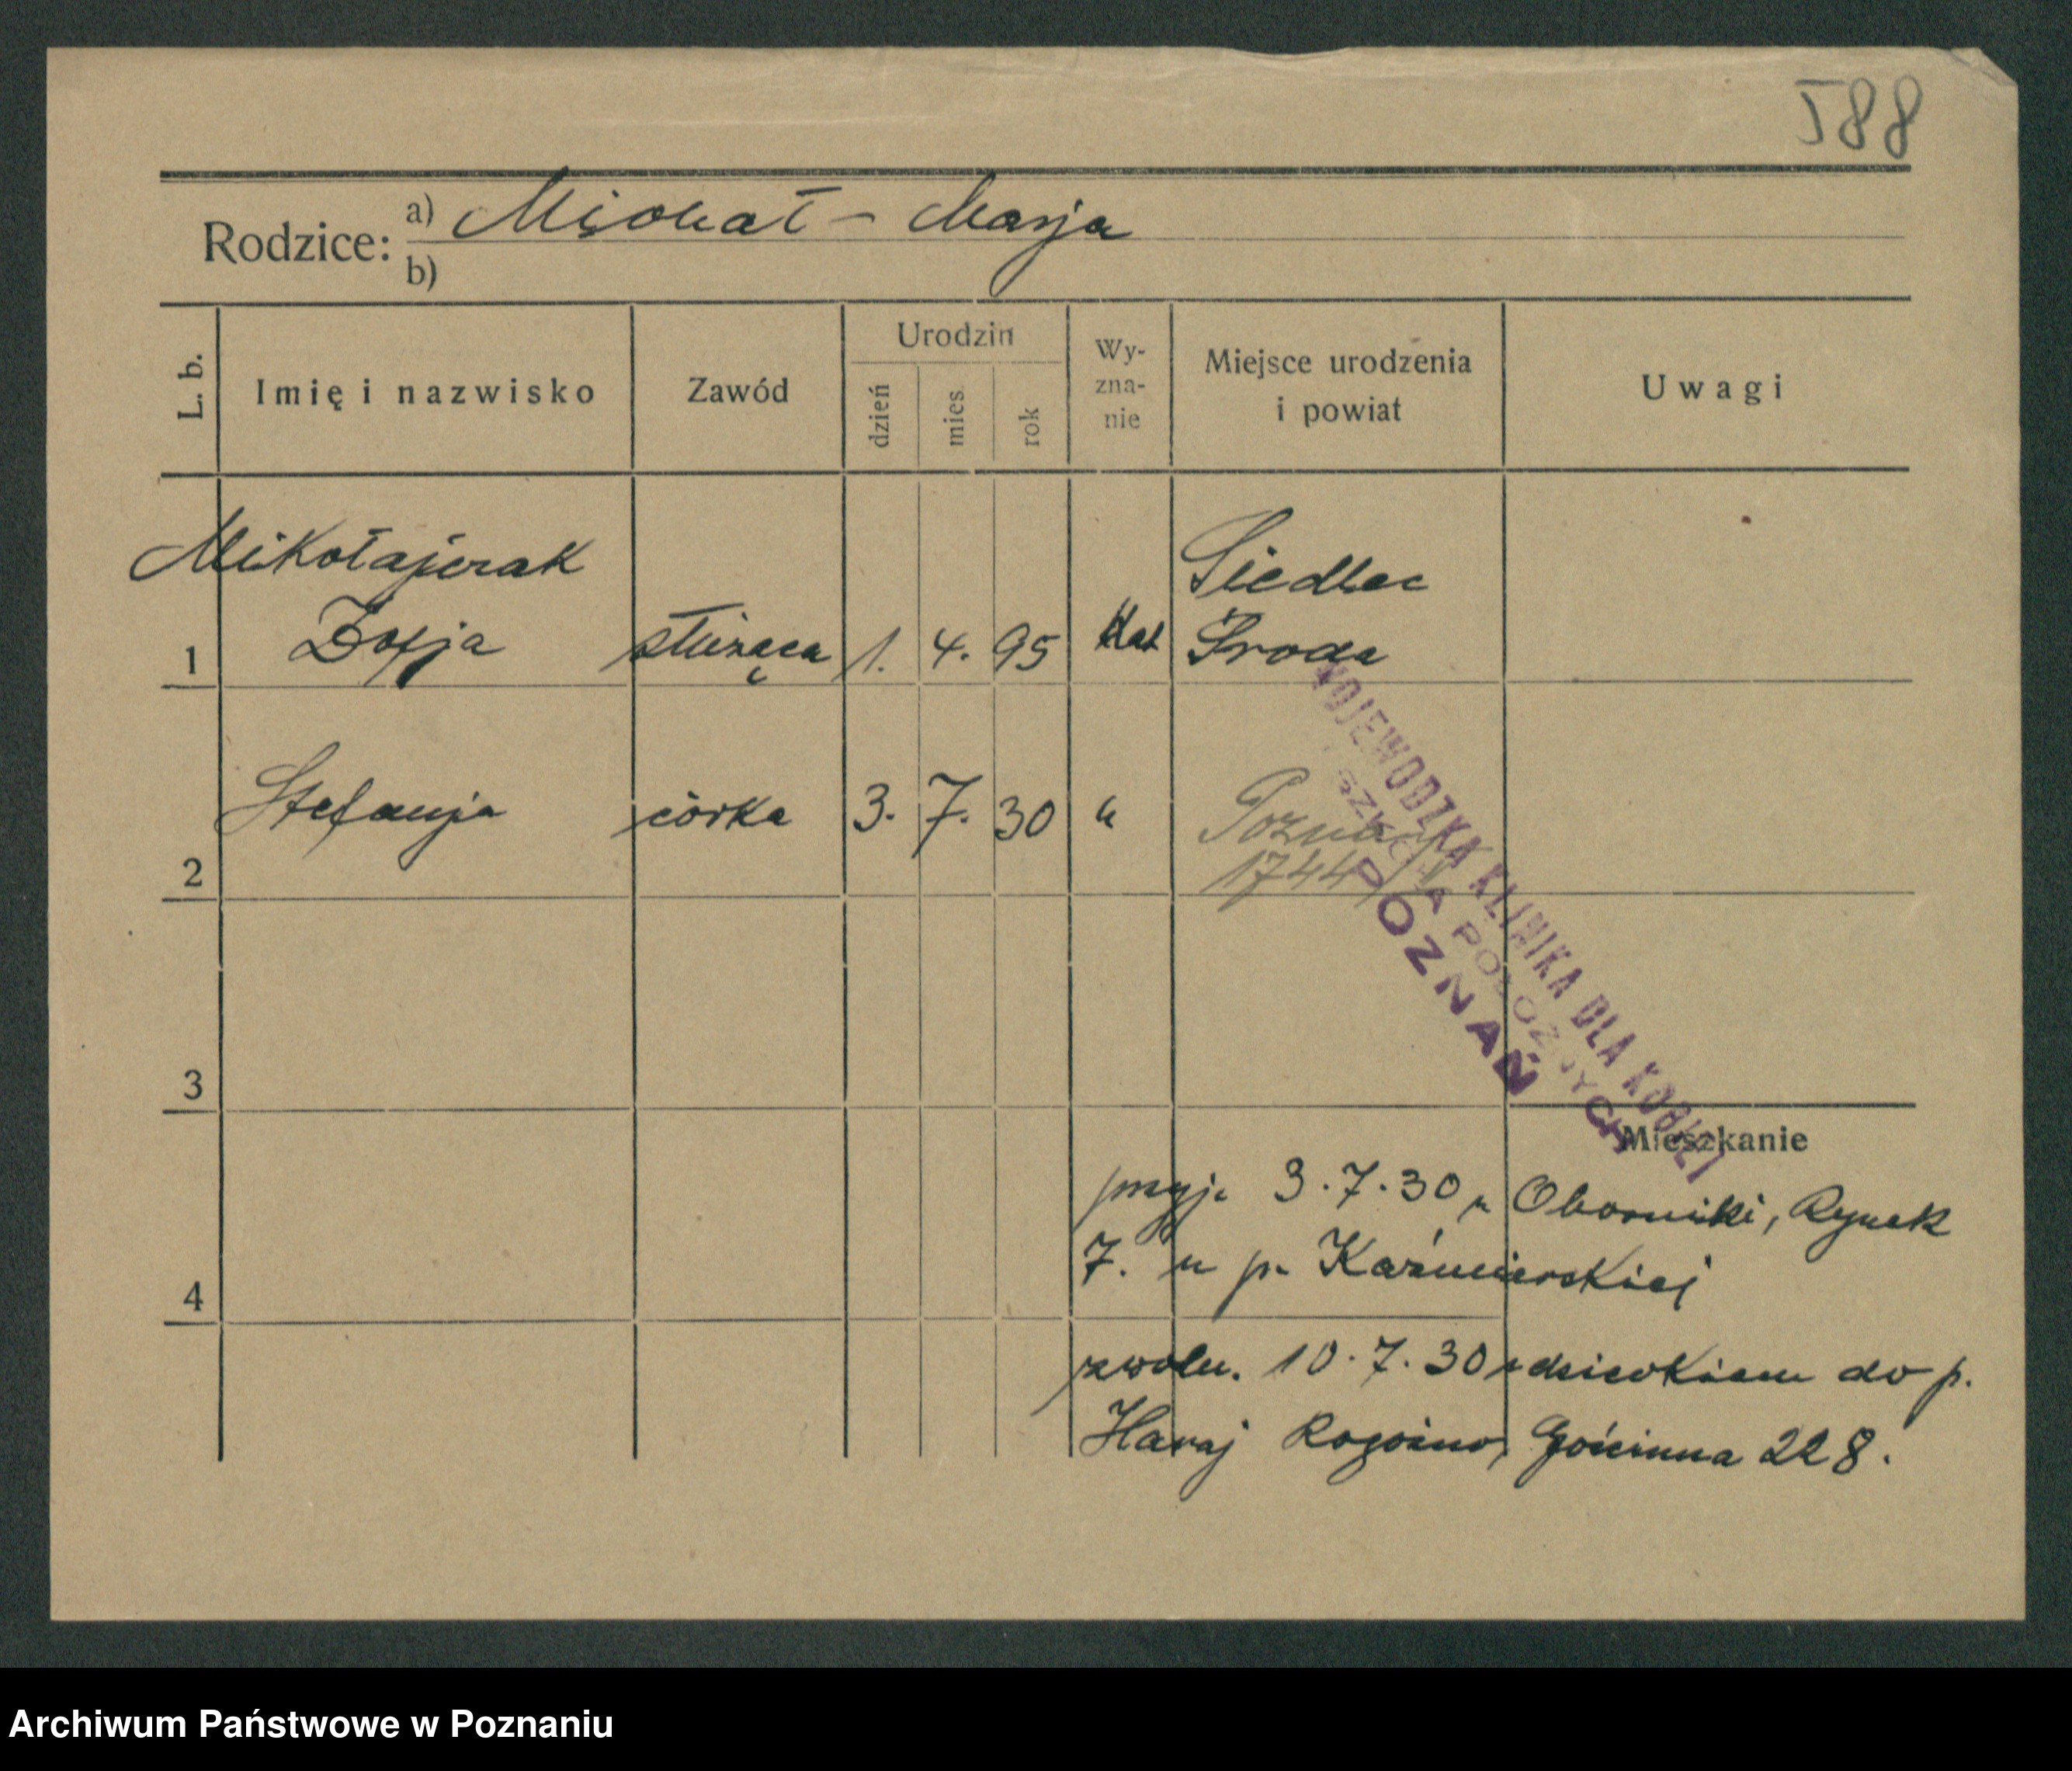 588
Rodzice: a) Michał – Marja
b)
L. b. Imię i nazwisko Zawód Urodzin dzień mies. rok Wy-zna-nie Miejsce urodzenia i powiat Uwagi
Mikołajczak Siedlec
1 Zofja służąca 1. 4. 95 Kat Środa
2 Stefanja córka 3. 7. 30 " Poznań
1744
WOJEWÓDZKA KLINIKA DLA KOBIET
I SZKOŁA POŁOŻNYCH
POZNAŃ
3
Mieszkanie
przyj. 3.7.30 z Oborniki, Rynek
7. u p. Kaźmierskiej
4
zwoln. 10.7.30 z dzieckiem do p.
Haraj Rogoźno, Gościnna 228.
Archiwum Państwowe w Poznaniu